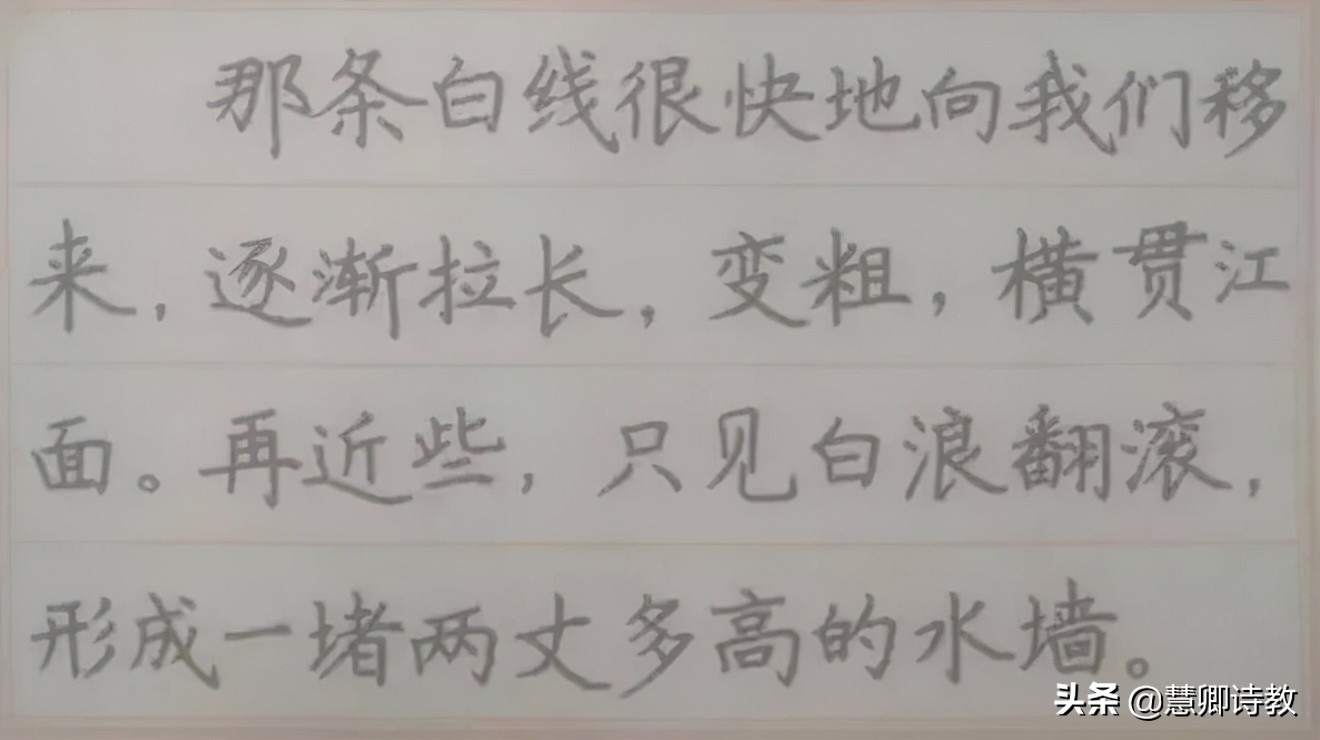 那条白线很快地向我们移
来，逐渐拉长，变粗，横贯江
面。再近些，只见白浪翻滚，
形成一堵两丈多高的水墙。
头条 @慧卿诗教